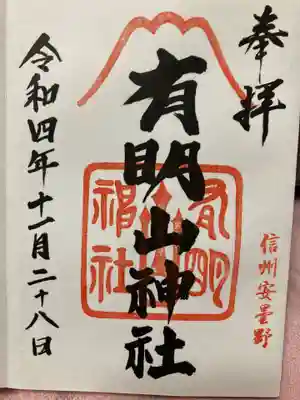 奉拝
信州安曇野
有明山神社
有明山神社
令和四年十一月二十八日